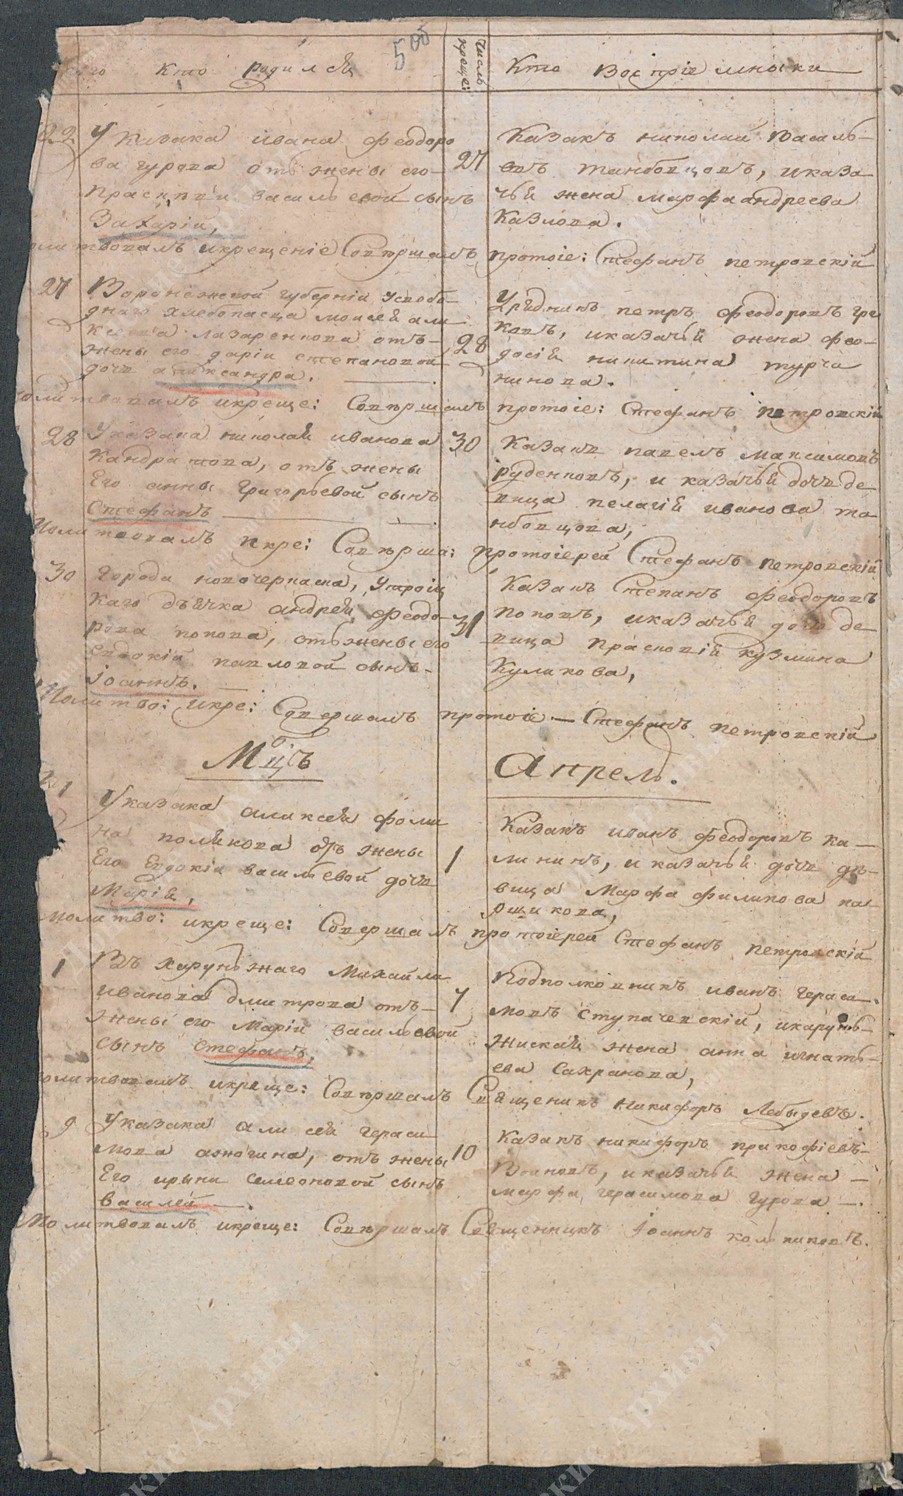 Кто родился
Числ крещеі
Кто Воспріемники
22
У Казака ивана феодоро
ва гурова отъ жены его
Прасковіи василь евой сынъ
Захарій,
27
Казакъ николай Василь-
евъ танбовцовъ, и каза-
чья жена марфа андреева
Казлова.
молитвовалъ икрещеніе Совершалъ протоіе: Стефанъ петровскій
27
Воронежской губерніи
хлебопасца моисея али
лазаренкова отъ
жены его даріи степановой
дочь александра.
28
Урядникъ петръ феодоровъ
ковъ, иказачья жена фео-
досія никитина турча
нинова.
молитвовалъ икреще: Совершалъ протоіе: Стефанъ петровскій
28
Указака николая иванова
Кандратова, отъ жены
Его анны григорьевой сынъ
Стефанъ
30
Казакъ павелъ максимовъ
руденковъ, и казачья дочь де
вица пелагія иванова та
нбовцова,
молитвовалъ икре: Соверша: протоіерей Стефанъ петровскій
30
города новочеркаска, Утроиц
каго дьячка андрея феодо-
рова попова, отъ жены его
павловой сынъ-
іоаннъ.
31
Казакъ Степанъ феодоровъ
поповъ, иказачья дочь де-
вица прасковія кузмина
Куликова,
Молитво: икре: Совершалъ протоіе - Стефанъ петровскій
Мцъ
Апрель.
1
Указака аликсея фоми
на полякова отъ жены
Его Евдокіи васильевой дочь
Марія,
1
Казакъ иванъ феодоровъ ка-
лининъ, и казачья дочь дѣ-
вица Марфа филипова ка
рщикова,
молитво: икреще: Совершалъ протоіерей Стефанъ петровскій
1
Въ харунжаго Михайла
иванова дмитрова отъ-
жены его Маріи васильевой
сынъ Стефанъ,
7
Подполковникъ иванъ гераси-
мовъ Ступачевскій, ихарунь-
жиская жена анна игнать-
ева Сахранова,
молитвовалъ икреще: Совершалъ Священикъ никифоръ Лебыдевъ.
9
Указака алисея гераси
мова ажогина, отъ жены
Его ирыны Семеоновой сынъ
василей
10
Казакъ никифоръ прокофіевъ-
Ивановъ, иказачья жена -
марфа герасимова гурова -.
молитвовалъ икреще: Совершалъ Священникъ іоаннъ колпиковъ.